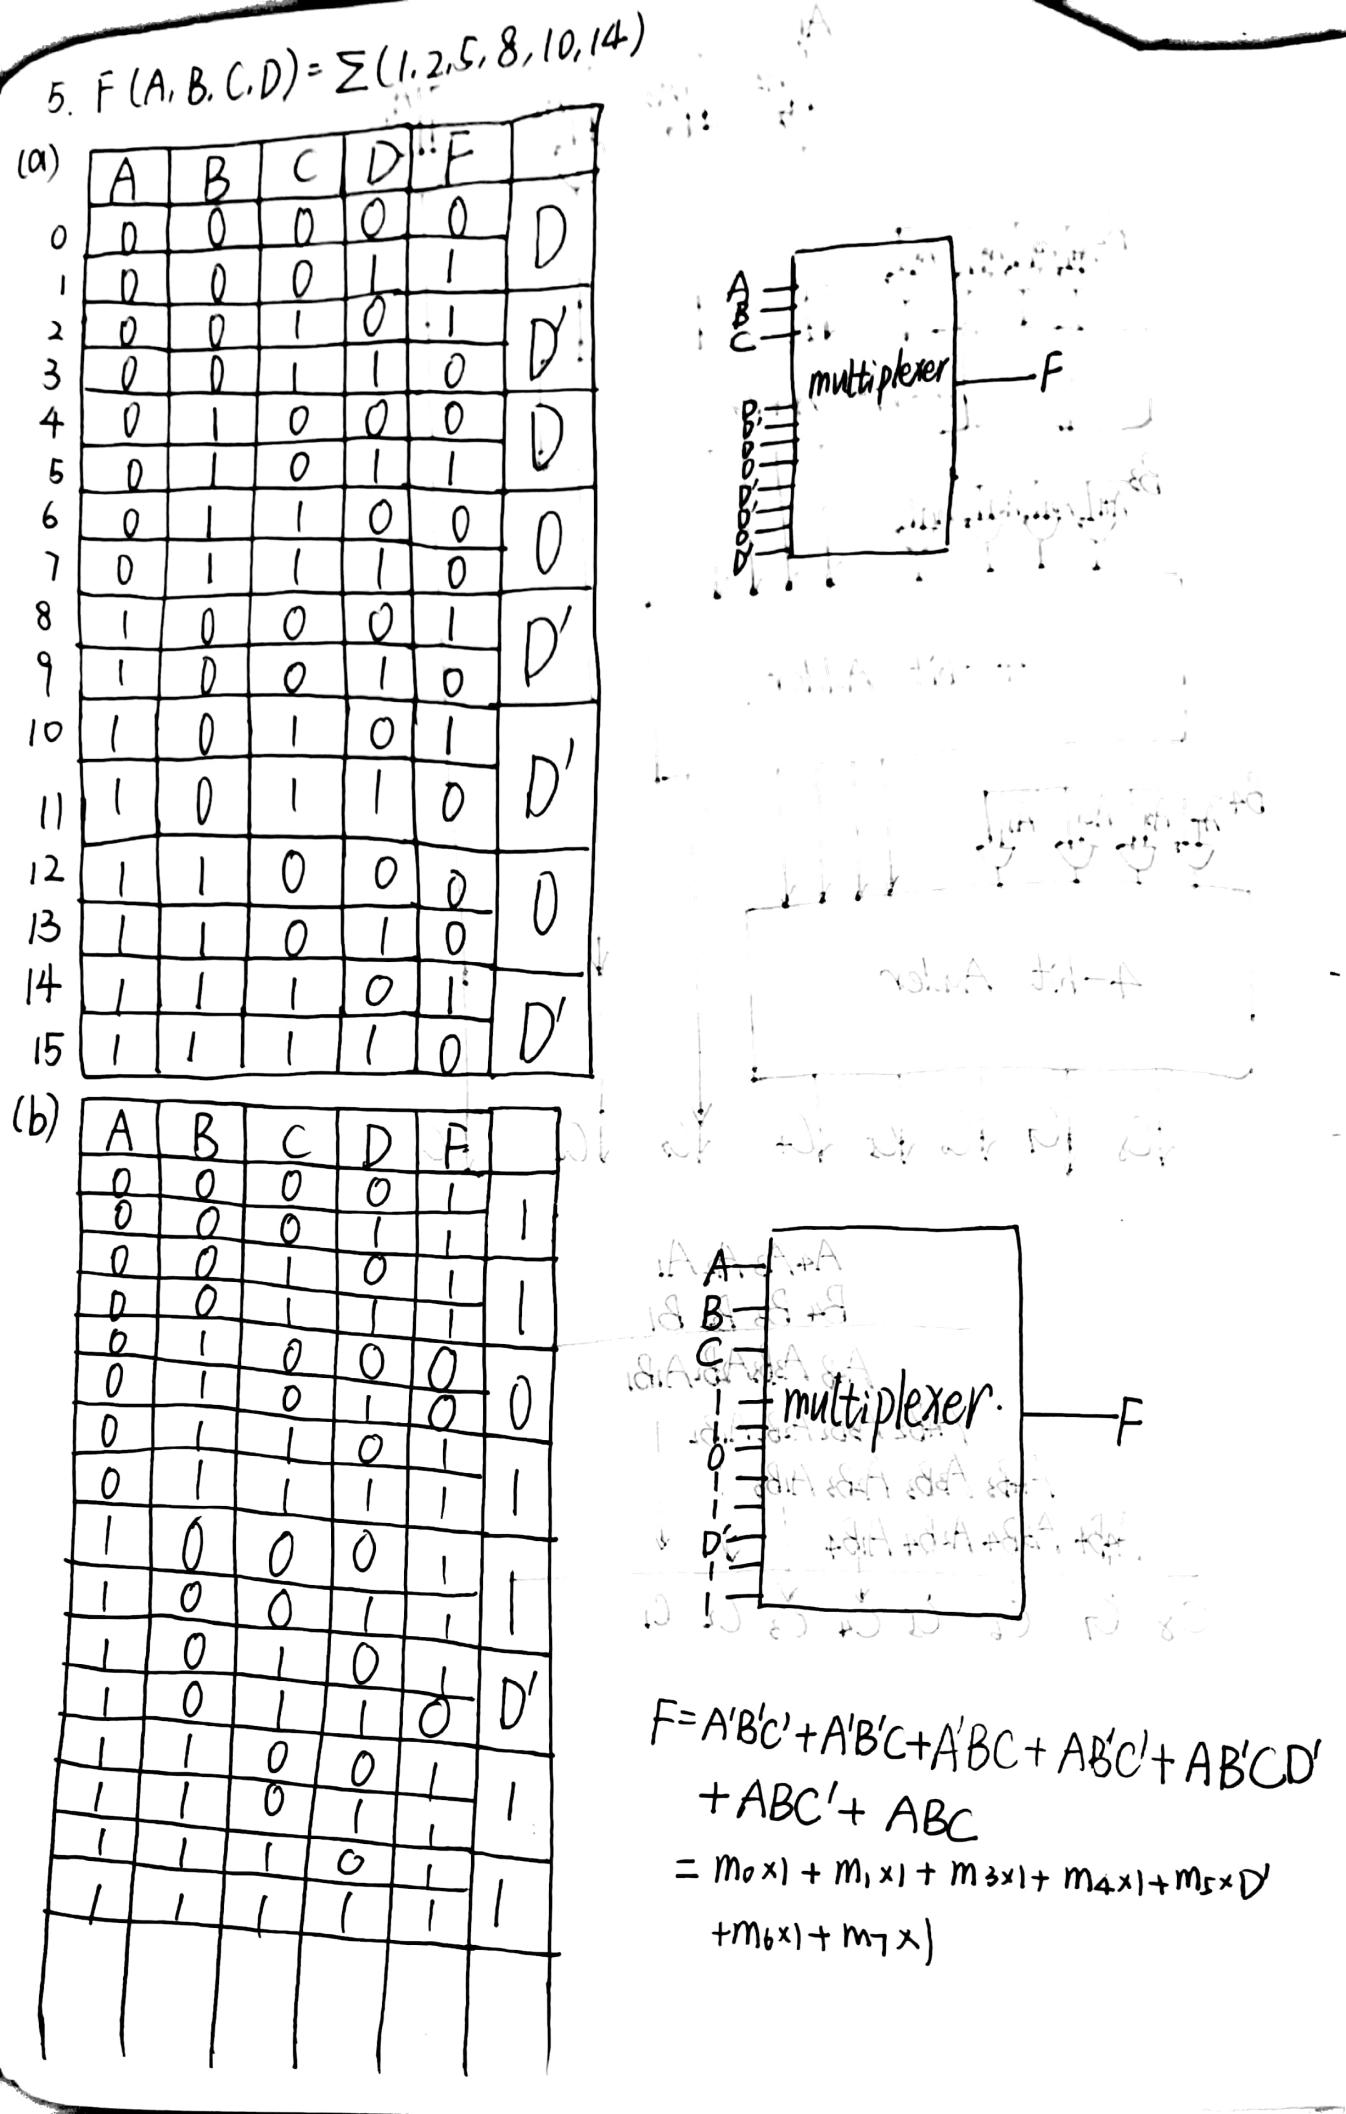 5. F(A,B,C,D)=Σ(1,2,5,8,10,14)
(a)
A B C D F
0 0 0 0 0 0 D
1 0 0 0 1 1
2 0 0 1 0 1 D'
3 0 0 1 1 0
4 0 1 0 0 0 D
5 0 1 0 1 1
6 0 1 1 0 0 0
7 0 1 1 1 0
8 1 0 0 0 1 D'
9 1 0 0 1 0
10 1 0 1 0 1 D'
11 1 0 1 1 0
12 1 1 0 0 0 0
13 1 1 0 1 0
14 1 1 1 0 1 D'
15 1 1 1 1 0
A
B
C
multiplexer
F
D
D'
D
0
D'
D'
0
D'
(b)
A B C D F
0 0 0 0 1 1
0 0 0 1 1
0 0 1 0 1 1
0 0 1 1 1
0 1 0 0 0 0
0 1 0 1 0
0 1 1 0 1 1
0 1 1 1 1
1 0 0 0 1 1
1 0 0 1 1
1 0 1 0 1 D'
1 0 1 1 0
1 1 0 0 1 1
1 1 0 1 1
1 1 1 0 1 1
1 1 1 1 1
A
B
C
1
multiplexer.
F
1
0
1
1
D'
1
1
F=A'B'C'+A'B'C+A'BC+AB'C'+AB'CD'
+ABC'+ABC
=m0×1+m1×1+m3×1+m4×1+m5×D'
+m6×1+m7×1